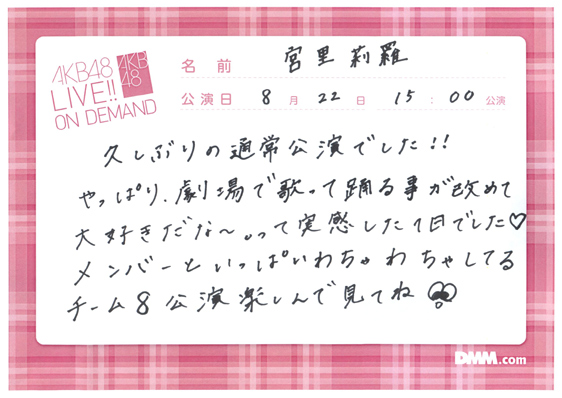 AKB48
LIVE!!
ON DEMAND
AKB
48
名前 宮里莉羅
公演日 8月22日 15:00公演
久しぶりの通常公演でした!!
やっぱり、劇場で歌って踊る事が改めて
大好きだな〜。って実感した1日でした♡
メンバーといっぱいわちゃわちゃしてる
チーム8公演楽しんで見てね
DMM.com